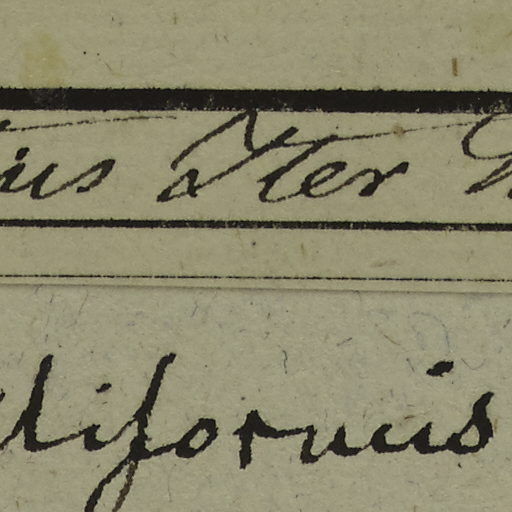 ius Iter
liformis